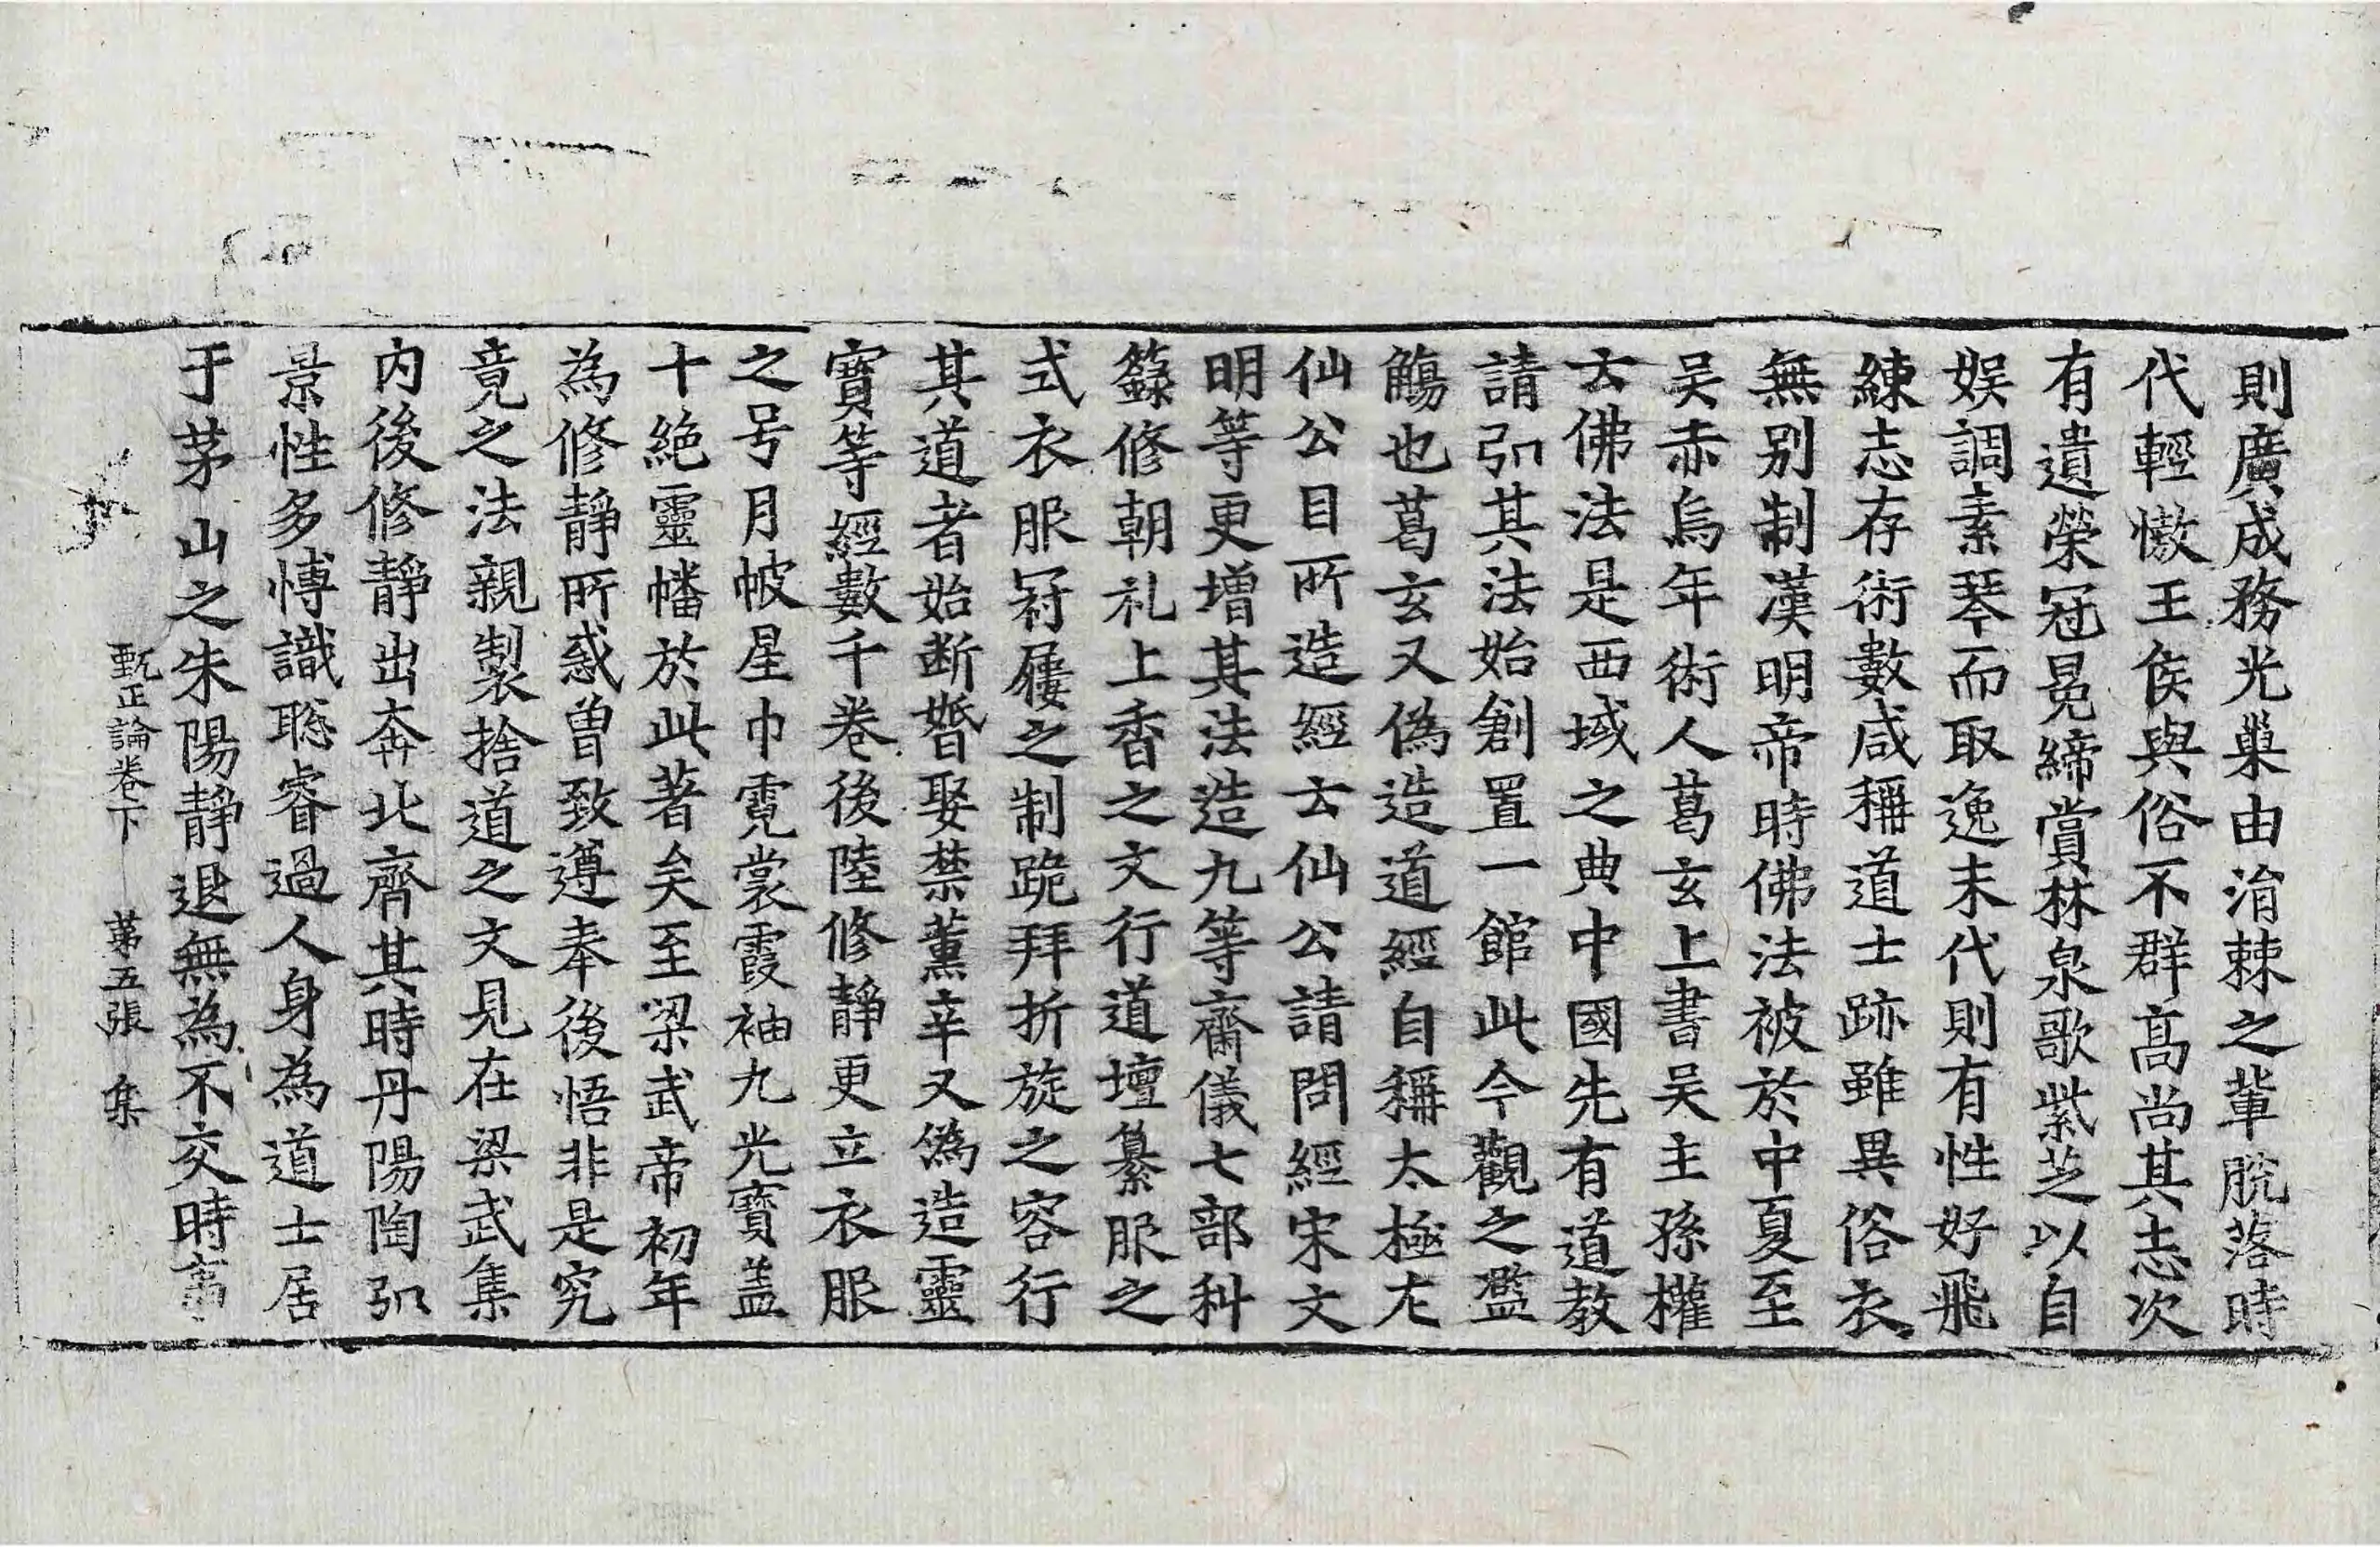 則廣成務光巢由消棘之輩脫落時
代輕慠王侯與俗不群髙尚其志次
有遺榮冠冕締賞林泉歌紫芝以自
娛調素琴而取逸末代則有性好飛
練志存術數咸稱道士跡雖異俗衣
無別制漢明帝時佛法被於中夏至
吳赤烏年術人葛玄上書吳主孫權
云佛法是西域之典中國先有道教
請弘其法始創置一館此今觀之濫
觴也葛玄又偽造道經自稱太極左
仙公目所造經云仙公請問經宋文
明等更增其法造九等齋儀七部科
籙修朝礼上香之文行道壇纂服之
式衣服冠屨之制跪拜折旋之容行
其道者始断婚娶禁薰辛又偽造靈
寳等經數千卷後陸修靜更立衣服
之号月帔星巾霓裳霞袖九光寶盖
十絶靈幡於此著矣至梁武帝初年
為修靜所惑曽致遵奉後悟非是究
竟之法親製捨道之文見在梁武集
内後修靜出奔北齊其時丹陽陶弘
景性多愽識聡睿過人身為道士居
于茅山之朱陽靜退無為不交時事
甄正論卷下 苐五張 集